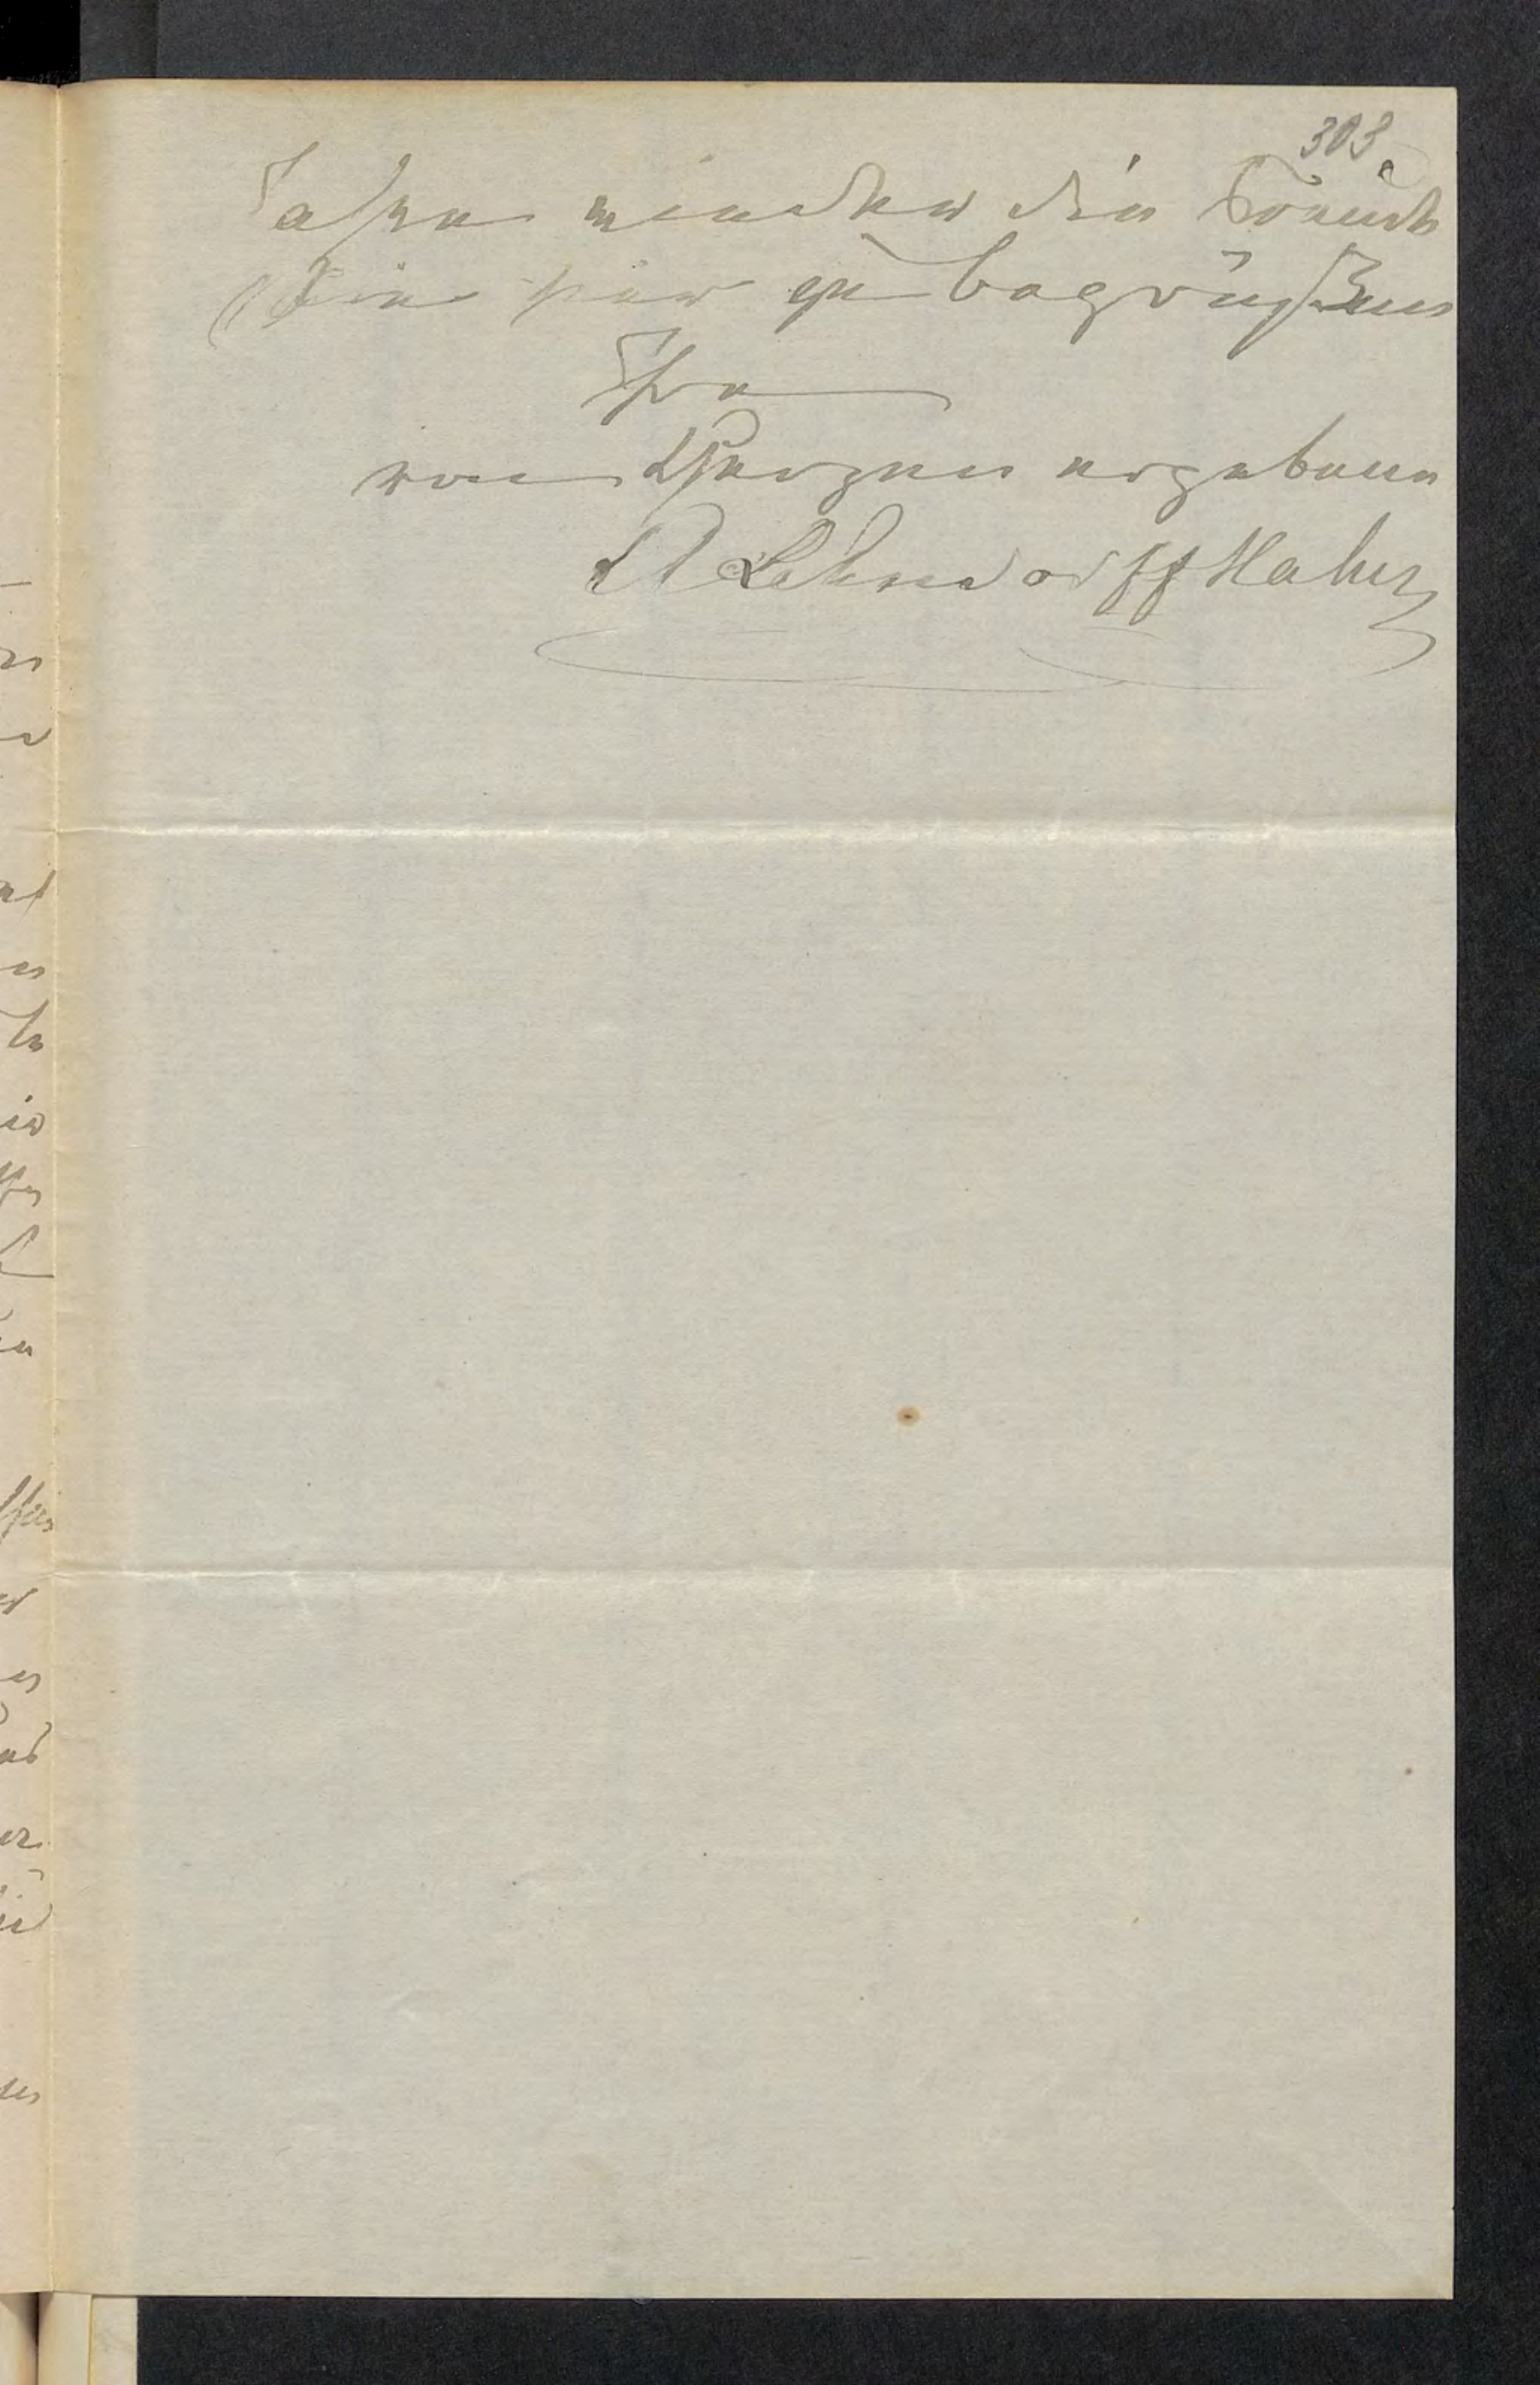 303
Jahre wieder die Freude
Sie hier zu begrüßen
Ihre
von Herzen ergebene
A Lehndorff Hahn